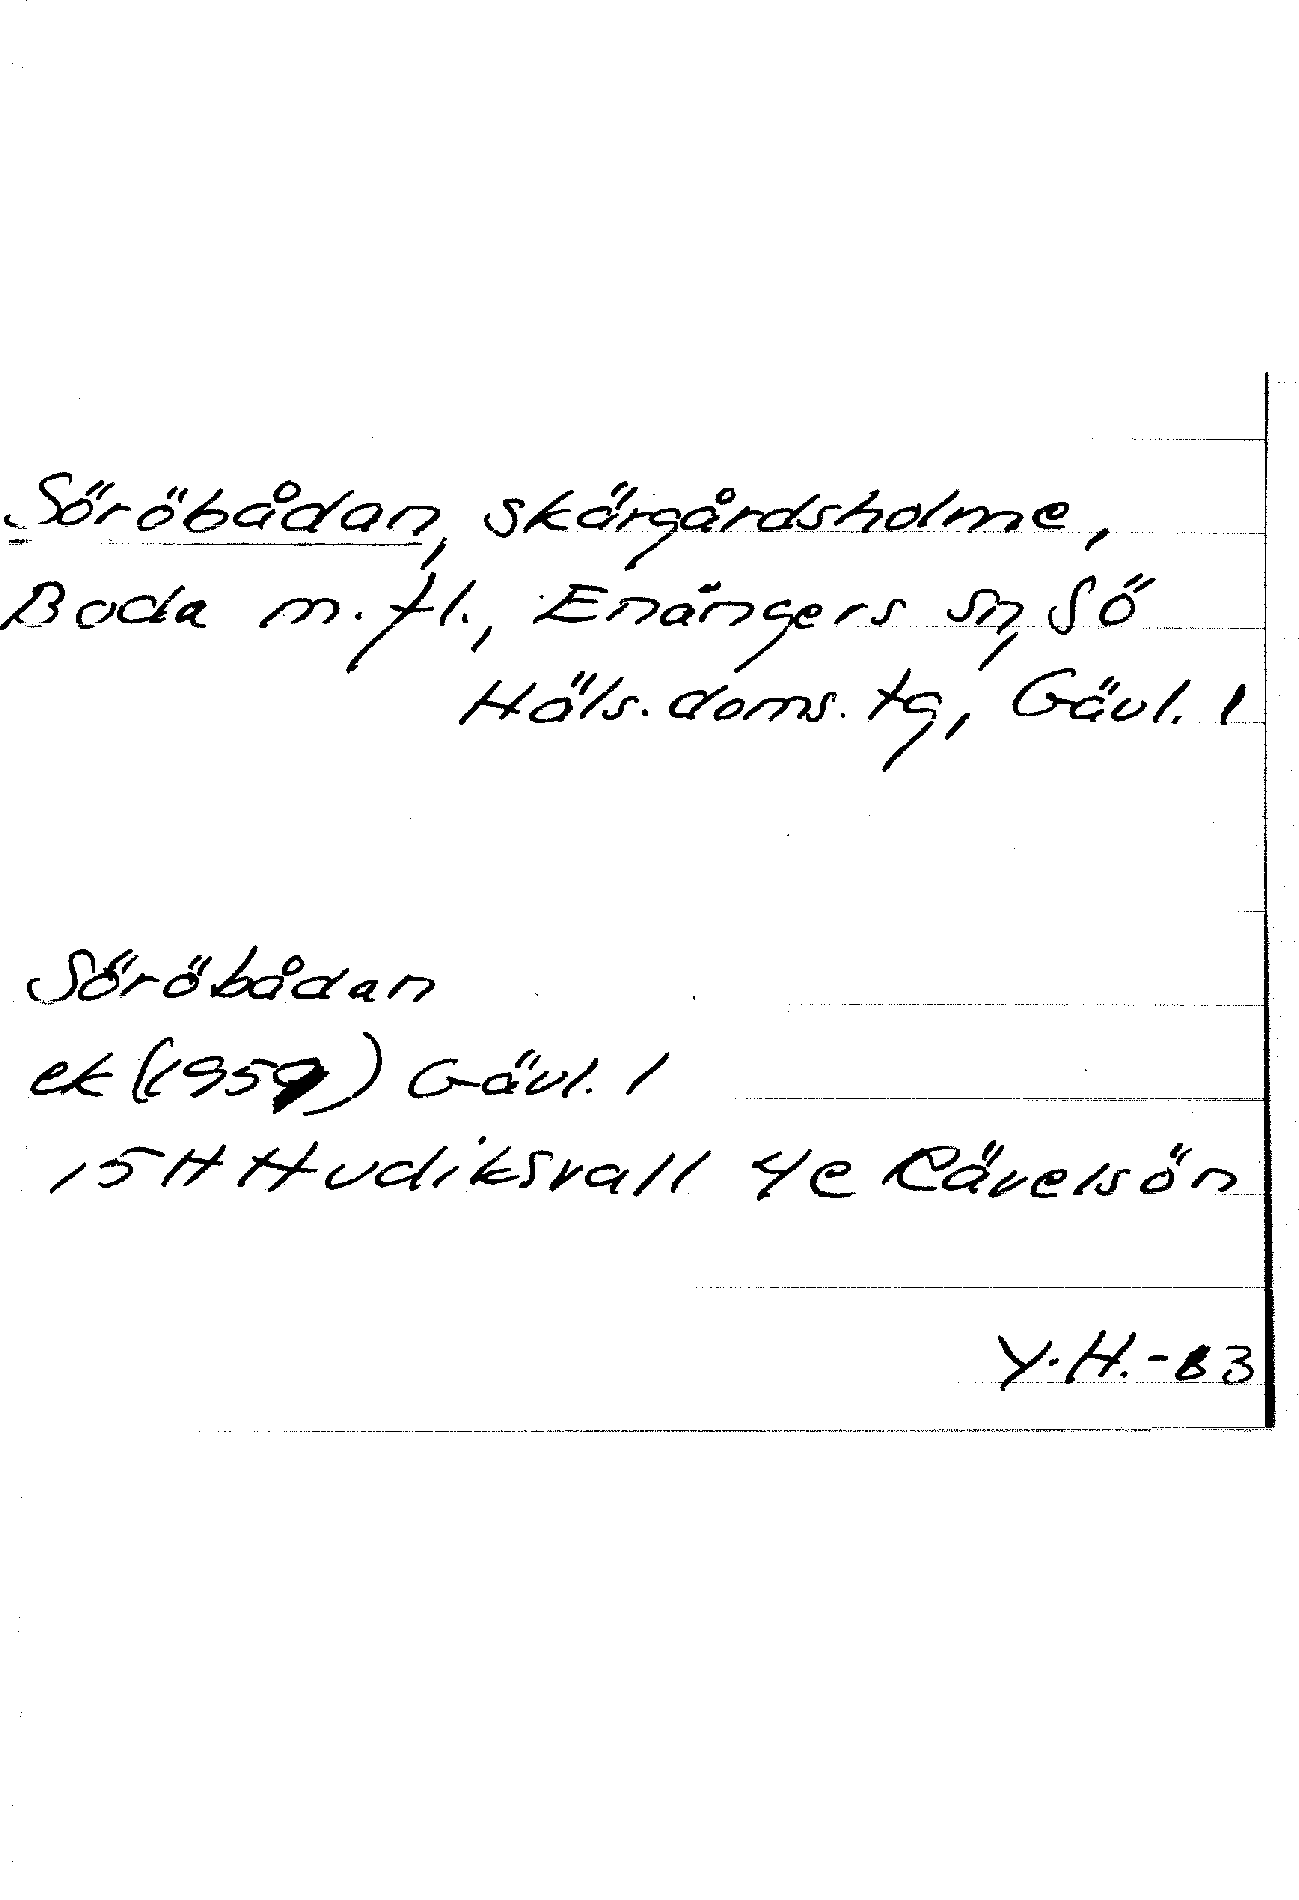 Söröbådan, skärgårdsholme,
Boda m.fl., Enångers sn, Sö
Häls. doms. tg, Gävl. l
Söröbådan
ek (1959) Gävl. l
15H Hudiksvall 4e Rävelsön
Y.H.-83